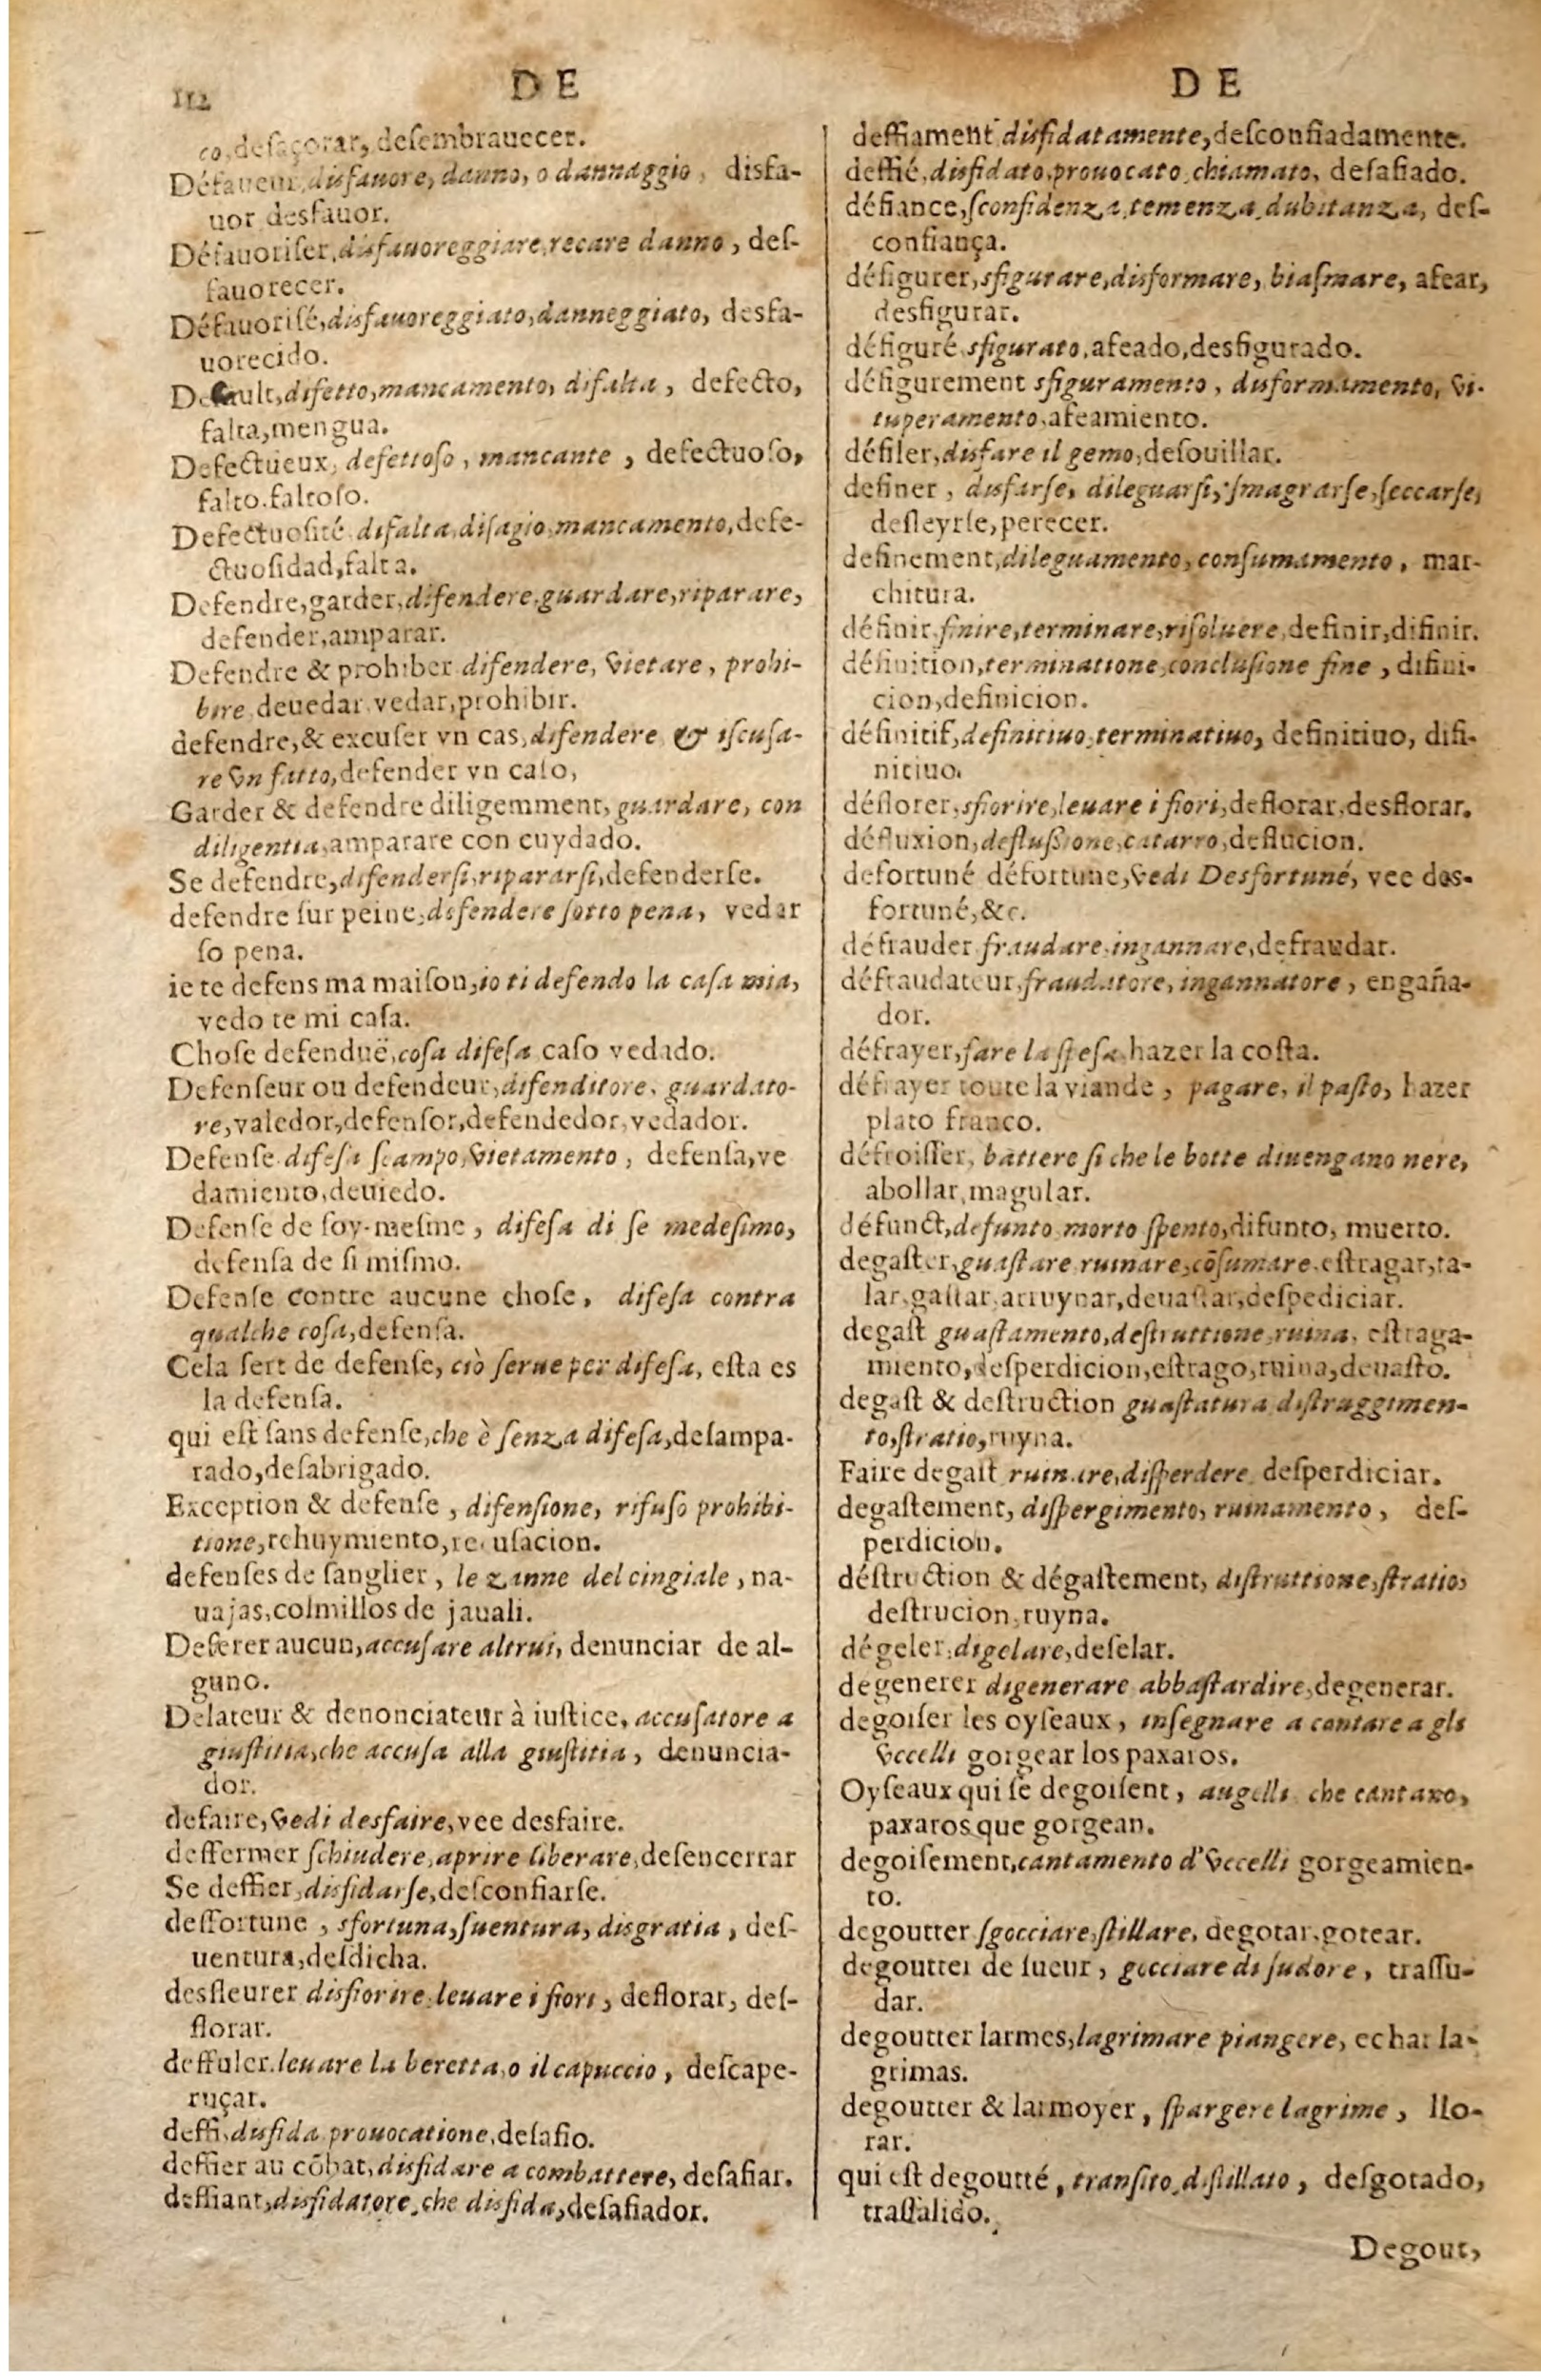 112
DE
co, desaçorar, desembrauecer.
Défaueur, disfauore, danno, o dannaggio, disfa-
uor desfauor.
Défauoriser, disfauoreggiare, recare danno, des-
fauorecer.
Défauorisé, disfauoreggiato, danneggiato, desfa-
uorecido.
Default, difetto, mancamento, difalta, defecto,
falta, mengua.
Defectueux, defettoso, mancante, defectuoso,
falto. faltoso.
Defectuosité difalta, disagio, mancamento, defe-
ctuosidad, falta.
Defendre, garder, difendere. guardare, riparare,
defender, amparar.
Defendre & prohiber difendere, vietare, prohi-
bire deuedar vedar, prohibir.
defendre, & excuser vn cas, difendere & iscusa-
re vn fatto, defender vn caso,
Garder & defendre diligemment, guardare, con
diligentia, amparare con cuydado.
Se defendre, difendersi, ripararsi, defenderse.
defendre sur peine, difendere sotto pena, vedar
so pena.
ie te defens ma maison, io ti defendo la casa mia,
vedo te mi casa.
Chose defenduë, cosa difesa caso vedado.
Defenseur ou defendeur, difenditore, guardato-
re, valedor, defensor, defendedor, vedador.
Defense difesa scampo, vietamento, defensa, ve
damiento, deuiedo.
Defense de soy-mesme, difesa di se medesimo,
defensa de si mismo.
Defense contre aucune chose, difesa contra
qualche cosa, defensa.
Cela sert de defense, ciò serue per difesa, esta es
la defensa.
qui est sans defense, che è senza difesa, desampa-
rado, desabrigado.
Exception & defense, difensione, rifuso prohibi-
tione, rehuymiento, recusacion.
defenses de sanglier, le zanne del cingiale, na-
uajas, colmillos de jauali.
Deferer aucun, accusare altrui, denunciar de al-
guno.
Delateur & denonciateur à iustice, accusatore a
giustitia, che accusa alla giustitia, denuncia-
dor.
defaire, vedi desfaire, vee desfaire.
deffermer schiudere, aprire liberare, desencerrar
Se deffier, disfidarse, desconfiarse.
deffortune, sfortuna, suentura, disgratia, des-
uentura, desdicha.
desfleurer disfiorire leuare i fiori, deflorar, des-
florar.
deffuler. leuare la beretta, o il capuccio, descape-
ruçar.
deffi, disfida prouocatione, desafio.
deffier au cõbat, disfidare a combattere, desafiar.
deffiant, disfidatore, che disfida, desafiador.
DE
deffiament disfidatamente, desconfiadamente.
deffié, disfidato, prouocato, chiamato, desafiado.
défiance, sconfidenza, temenza, dubitanza, des-
confiança.
défigurer, sfigurare, disformare, biasmare, afear,
desfigurar.
défiguré sfigurato, afeado, desfigurado.
défigurement sfiguramento, disformamento, vi-
tuperamento, afeamiento.
défiler, disfare il gemo, desouillar.
definer, disfarse, dileguarsi, smagrarse, seccarse,
desleyrse, perecer.
definement, dileguamento, consumamento, mar-
chitura.
définir finire, terminare, risoluere, definir, difinir.
définition, terminatione, conclusione fine, difini-
cion, definicion.
définitif, definitiuo, terminatiuo, definitiuo, difi-
nitiuo.
déflorer, sfiorire, leuare i fiori, deflorar, desflorar.
défluxion, deflussione, catarro, deflucion.
defortuné défortune, vedi Desfortuné, vee des-
fortuné, &c.
défrauder fraudare, ingannare, defraudar.
défraudateur, fraudatore, ingannatore, engaña-
dor.
défrayer, fare la spesa, hazer la costa.
défrayer toute la viande, pagare, il pasto, hazer
plato franco.
défroisser, battere si che le botte diuengano nere,
abollar, magular.
défunct, defunto morto spento, difunto, muerto.
degaster, guastare ruinare, cõsumare, estragar, ta-
lar, gastar, arruynar, deuastar, despediciar.
degast guastamento, destruttione, ruina, estraga-
miento, desperdicion, estrago, ruina, deuasto.
degast & destruction guastatura distruggimen-
to, stratio, ruyna.
Faire degast ruinare, disperdere desperdiciar.
degastement, dispergimento, ruinamento, des-
perdicion.
déstruction & dégastement, distruttione, stratio,
destrucion, ruyna.
dégeler, digelare, deselar.
degenerer digenerare abbastardire, degenerar.
degoiser les oyseaux, insegnare a cantare a gli
vccelli gorgear los paxaros.
Oyseaux qui se degoisent, augelli che cantano,
paxaros que gorgean.
degoisement, cantamento d'vccelli gorgeamien-
to.
degoutter sgocciare, stillare, degotar, gotear.
degoutter de sueur, gocciare di sudore, trassu-
dar.
degoutter larmes, lagrimare piangere, echar la-
grimas.
degoutter & larmoyer, spargere lagrime, llo-
rar.
qui est degoutté, transito, distillato, desgotado,
trassalido.
Degout,